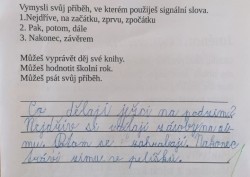 Vymysli svůj příběh, ve kterém použiješ signální slova.
1.Nejdříve, na začátku, zprvu, zpočátku
2. Pak, potom, dále
3. Nakonec, závěrem
Můžeš vyprávět děj své knihy.
Můžeš hodnotit školní rok.
Můžeš psát svůj příběh.
Co dělají ježci na podzimě?
Nejdříve si udělají zásoby na zi
mu. Potom se zahrabají. Nakonec
tráví zimu ve pelíšku.